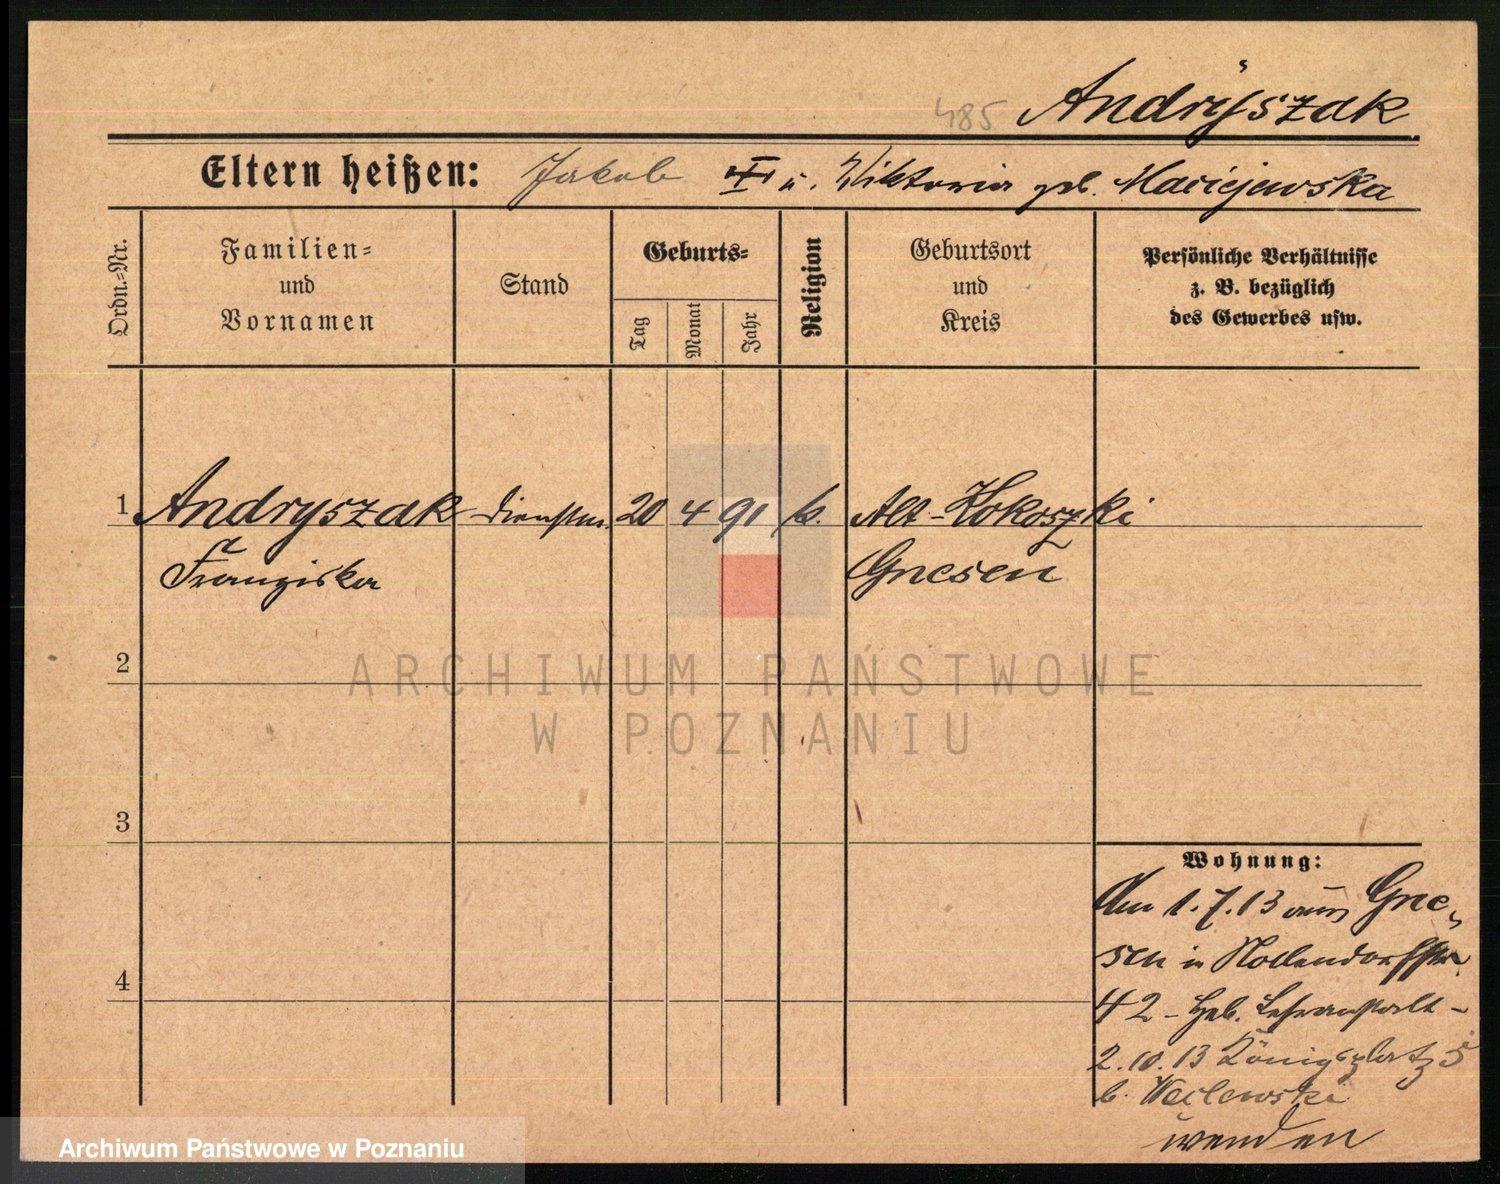 485 Andryszak
Eltern heißen: Jakob u. Wiktoria geb. Maciejewska
Ordn.-Nr.
Familien-
und
Vornamen
Stand
Geburts-
Tag
Monat
Jahr
Religion
Geburtsort
und
Kreis
Persönliche Verhältnisse
z. B. bezüglich
des Gewerbes usw.
1 Andryszak Dienstm. 20 4 91 k. Alt-Kokoszki
Franziska Gnesen
2
ARCHIWUM PAŃSTWOWE
W POZNANIU
3
Wohnung:
Am 1.7.13 aus Gne-
sen in Nollendorffstr.
4
42 - Heb. Lehranstalt -
2.10.13 Königsplatz 5
b.
wenden
Archiwum Państwowe w Poznaniu